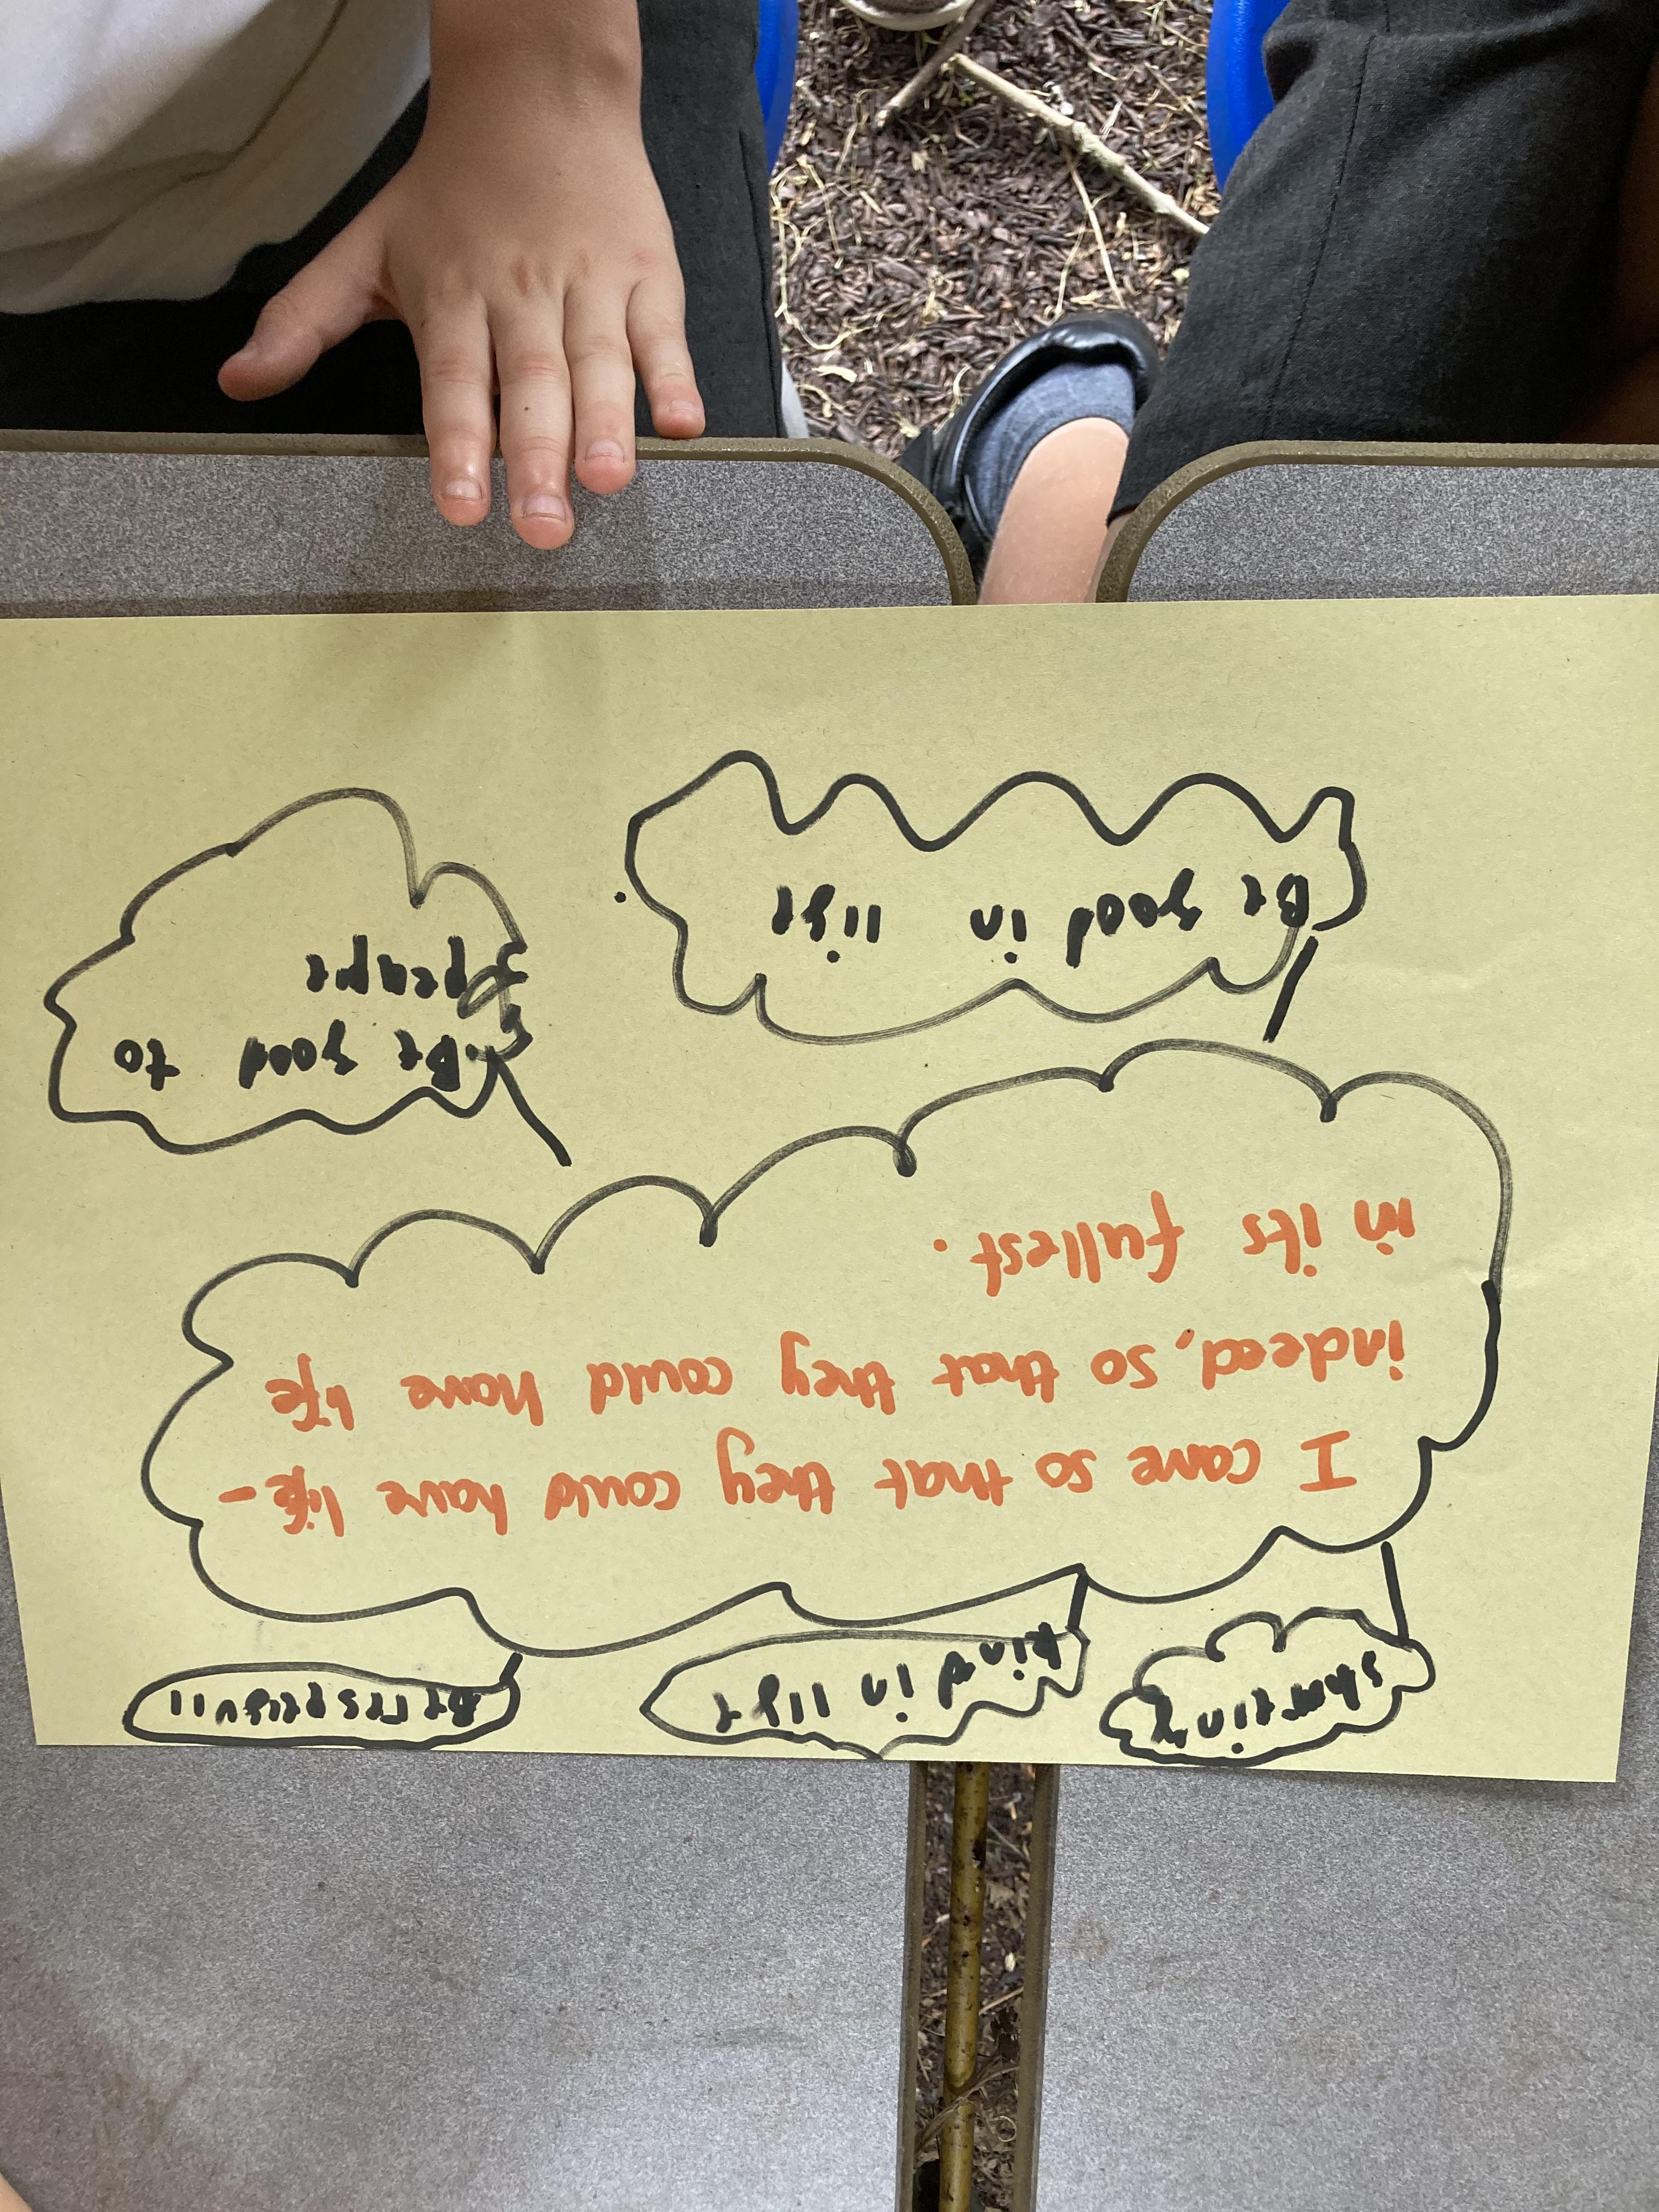 kind in life
Be
I came so that they could have life -
indeed, so that they could have life
in its fullest.
Be good in life
Be good to